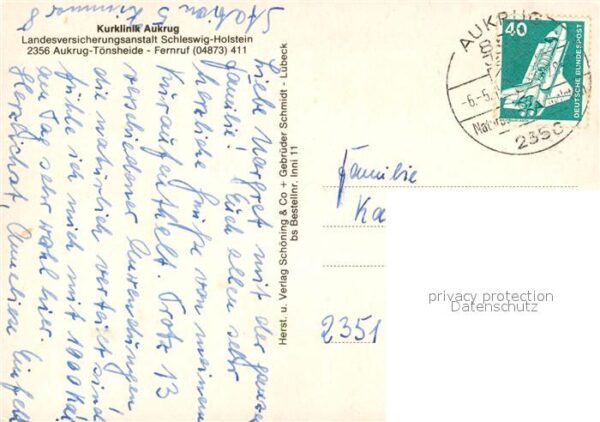 Kurklinik Aukrug
Landesversicherungsanstalt Schleswig-Holstein
2356 Aukrug-Tönsheide - Fernruf (04873) 411
Station 5
Zimmer 8
Liebe Margret mit der ganzen
Familie! Euch allen sehr
herzliche Grüße von meinem
Kuraufenthalt. Trotz 13
verschiedener Anwendungen
die natürlich verteilt sind
fühle ich mich mit 1000 Kal.
am Tag sehr wohl hier.
Herzlichst,
Herst. u. Verlag Schöning & Co + Gebrüder Schmidt - Lübeck
bs Bestellnr. Inni 11
AUKRUG
-6.-5.
Natur
2356
40
DEUTSCHE BUNDESPOST
Familie
Ka
2351
privacy protection
Datenschutz